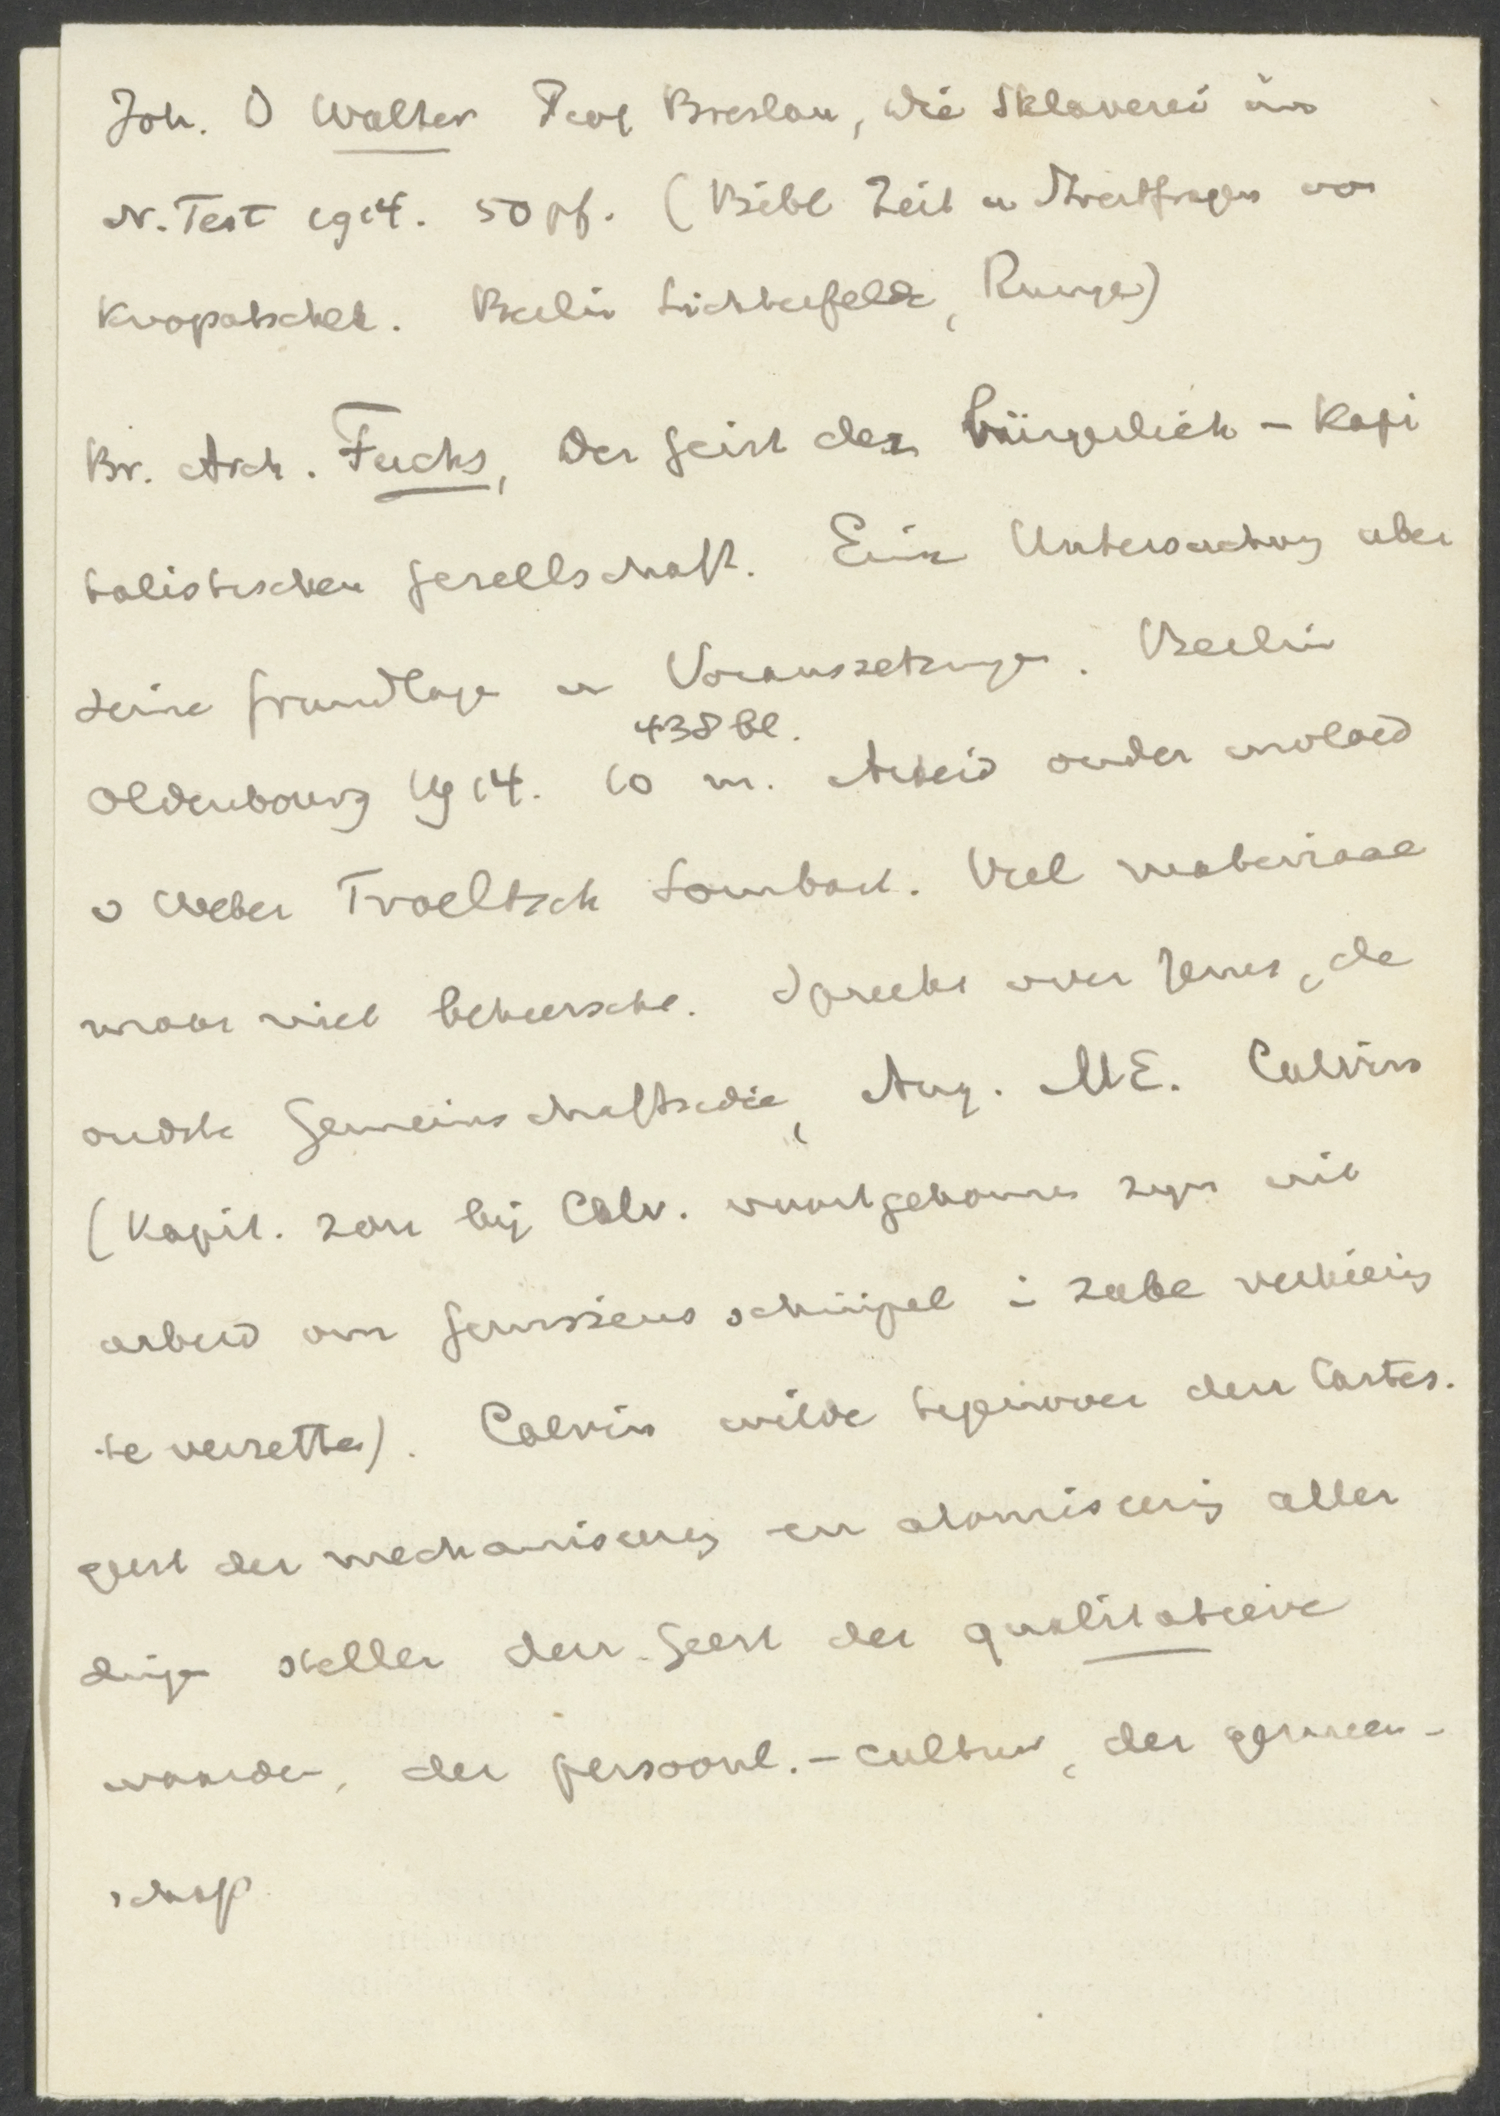 Joh. D Walter Prof Breslau, Die Sklaverei im
N. Test 1914. 50 pf. (Bibl Zeit u Streitfragen von
Kropatschek. Berlin Lichterfelde, Runge)
Br. Arch. Fuchs, Der Geist der bürgerlich - kapi
talistischen Gesellschaft. Eine Untersuchung uber
seine Grundlage u Voraussetzungen. Berlin
438 bl.
Oldenbourg 1914. 10 m. Arbeid onder invloed
v Weber Troeltsch Sombart. Veel materiaal
maar niet beheerscht. Spreekt over Jezus, de
oudste Gemeinschaftsidee, Aug. ME. Calvins
(Kapit. zou bij Calv. voortgekomen zyn uit
arbeid om gewissens te verzetten). Calvin wilde tegenover den Cartes.
geest der mechanisering en atomisering aller
dingen stellen den geest der qualitatieve
waarden, der persoonl. - cultuur, der gemeen-
schap